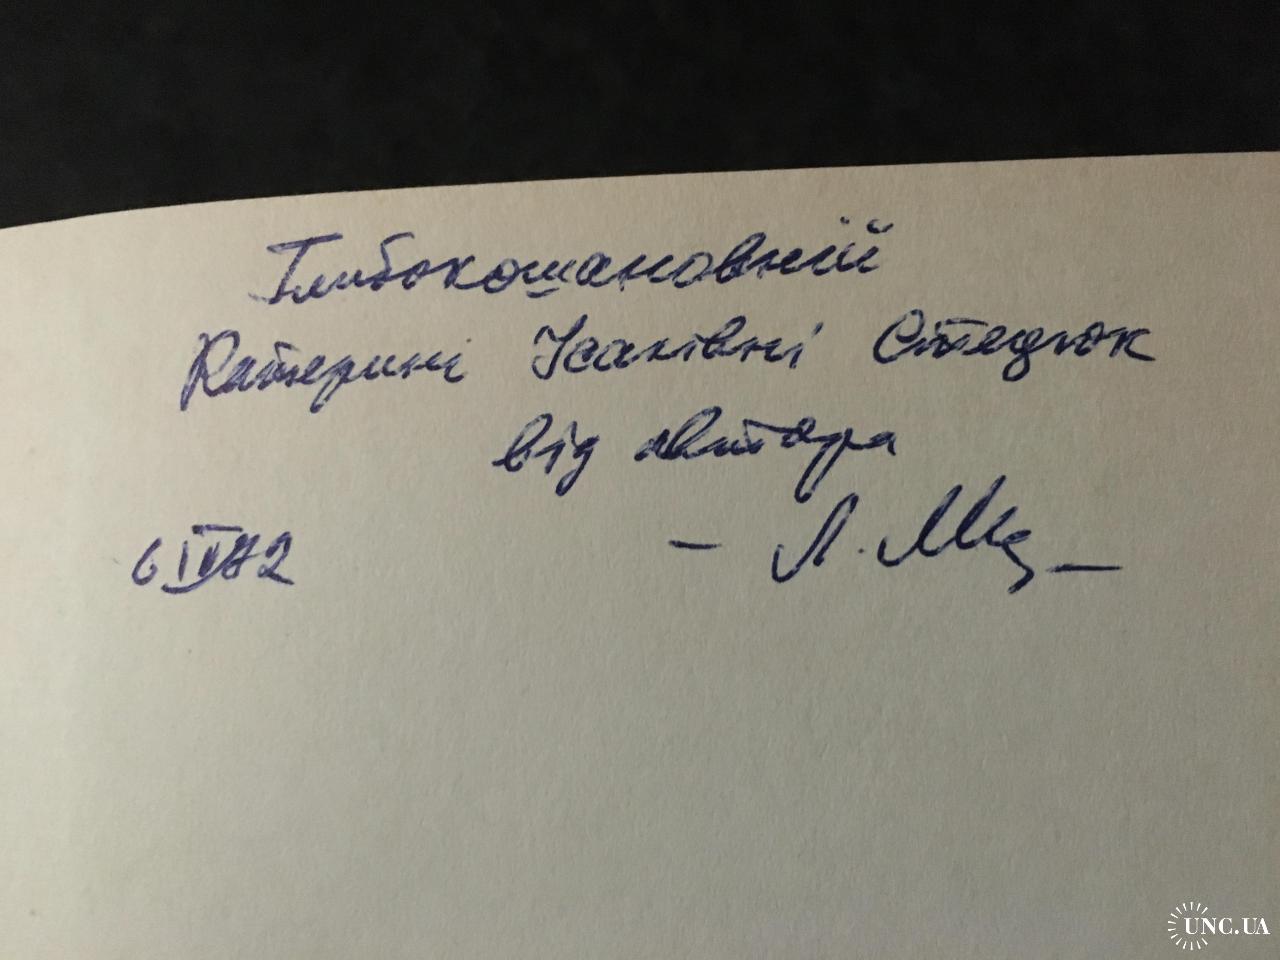 Глибокошановній
Катерині Ісаківні Стецюк
від автора
6 IV 72
– Л.
UNC.UA